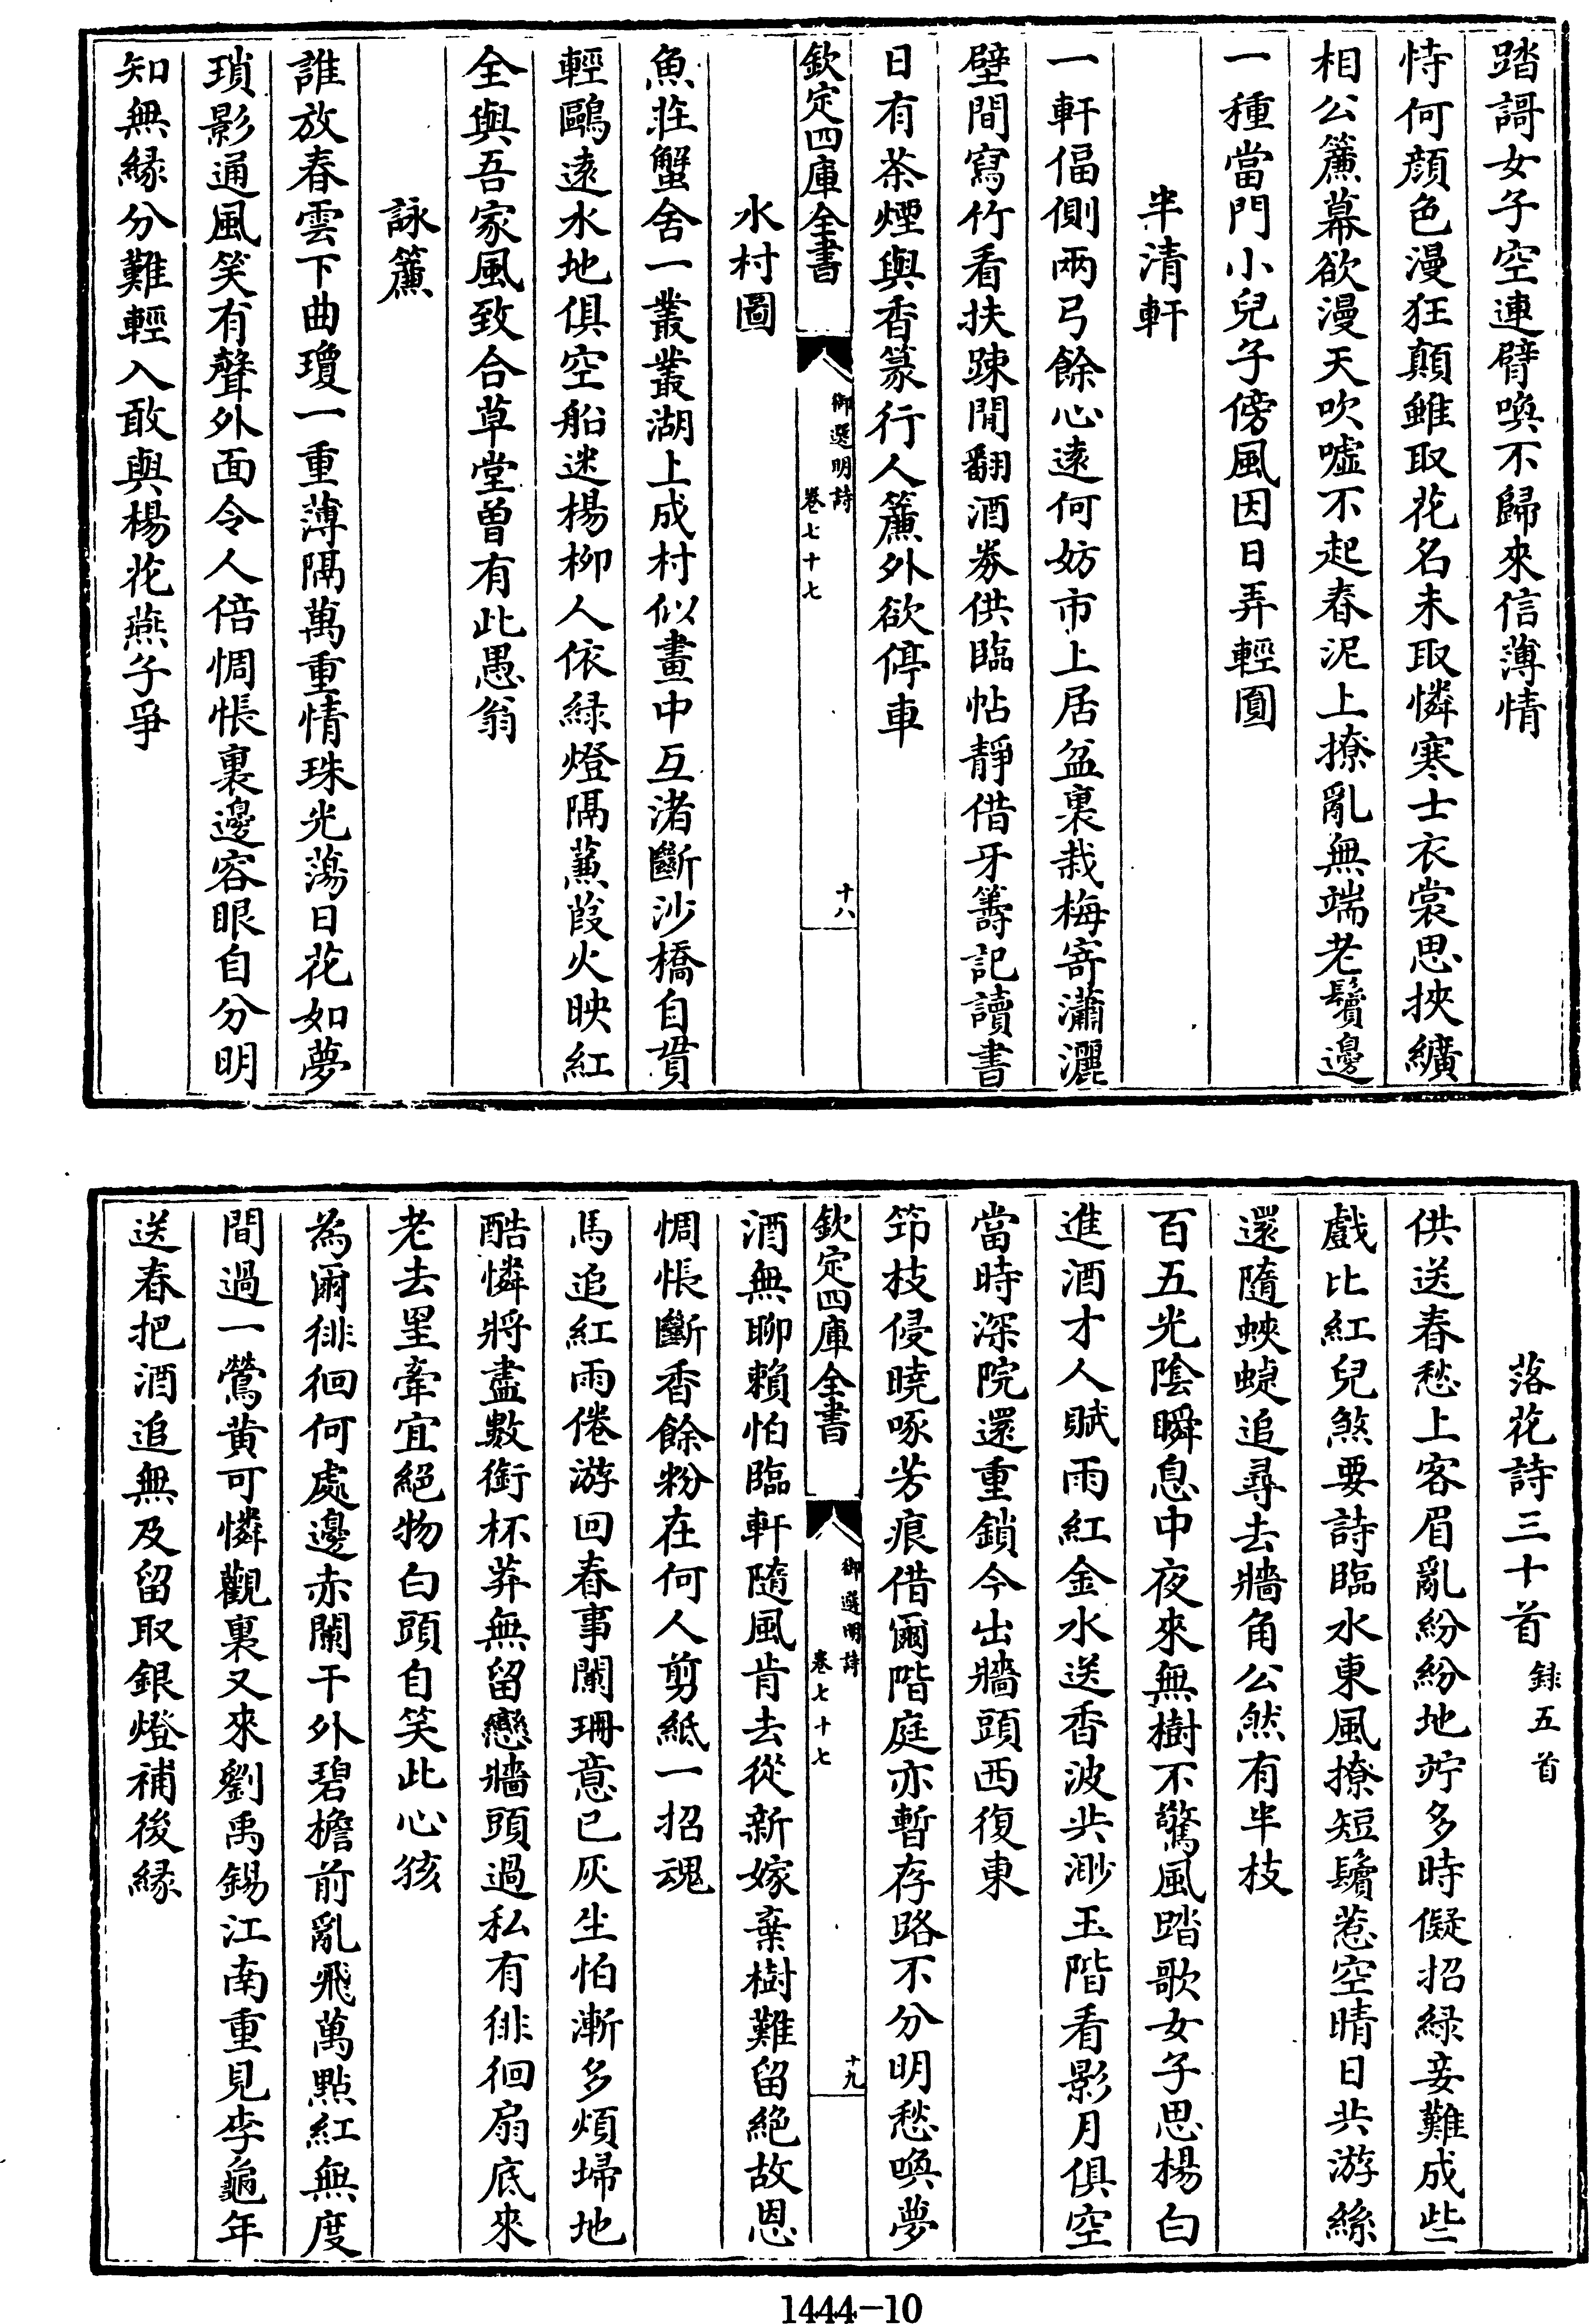 踏謌女子空連臂喚不歸來信薄情
恃何顔色漫狂顛雖取花名未取憐寒士衣裳思挾纊
相公簾幕欲漫天吹噓不起春泥上撩亂無端老鬢邊
一種當門小兒子傍風因日弄輕圓
半清軒
一軒偪側兩弓餘心遠何妨市上居盆裏栽梅寄瀟灑
壁間寫竹看扶踈閒翻酒劵供臨帖靜借牙籌記讀書
日有茶煙與香篆行人簾外欲停車
欽定四庫全書
御選明詩
卷七十七
十八
水村圖
魚莊蟹舍一叢叢湖上成村似畫中互渚斷沙橋自貫
輕鷗遠水地俱空船迷楊柳人依緑燈隔蒹葭火映紅
全與吾家風致合草堂曽有此愚翁
詠簾
誰放春雲下曲瓊一重薄隔萬重情珠光蕩日花如夢
瑣影通風笑有聲外面令人倍惆悵裏邊容眼自分明
知無緣分難輕入敢與楊花燕子爭
落花詩三十首 録五首
供送春愁上客眉亂紛紛地竚多時儗招緑妾難成些
戲比紅兒煞要詩臨水東風撩短鬢惹空晴日共游絲
還隨蛺蜨追尋去牆角公然有半枝
百五光陰瞬息中夜來無樹不驚風踏歌女子思楊白
進酒才人賦雨紅金水送香波共渺玉階看影月俱空
當時深院還重鎖今出牆頭西復東
笻枝侵曉啄芳痕借爾階庭亦暫存路不分明愁喚夢
欽定四庫全書
御選明詩
卷七十七
十九
酒無聊賴怕臨軒隨風肯去從新嫁棄樹難留絶故恩
惆悵斷香餘粉在何人剪紙一招魂
馬追紅雨倦游回春事闌珊意已灰生怕漸多煩埽地
酷憐將盡數銜杯莽無留戀牆頭過私有徘徊扇底來
老去罣牽宜絕物白頭自笑此心孩
為爾徘徊何處邊赤闌干外碧檐前亂飛萬點紅無度
間過一鶯黄可憐觀裏又來劉禹錫江南重見李龜年
送春把酒追無及留取銀燈補後緣
1444-10